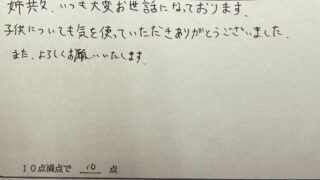 姉共々、いつも大変お世話になっております。
子供についても気を使っていただきありがとうございました。
また、よろしくお願いいたします。
10点満点で 10 点